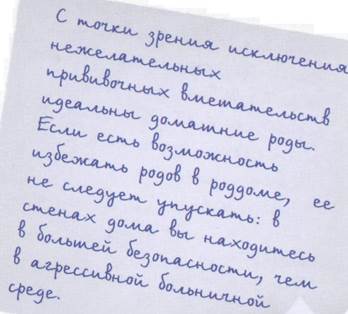 С точки зрения исключения
нежелательных
прививочных вмешательств
идеальны домашние роды.
Если есть возможность
избежать родов в роддоме, ее
не следует упускать: в
стенах дома вы находитесь
в большей безопасности, чем
в агрессивной больничной
среде.